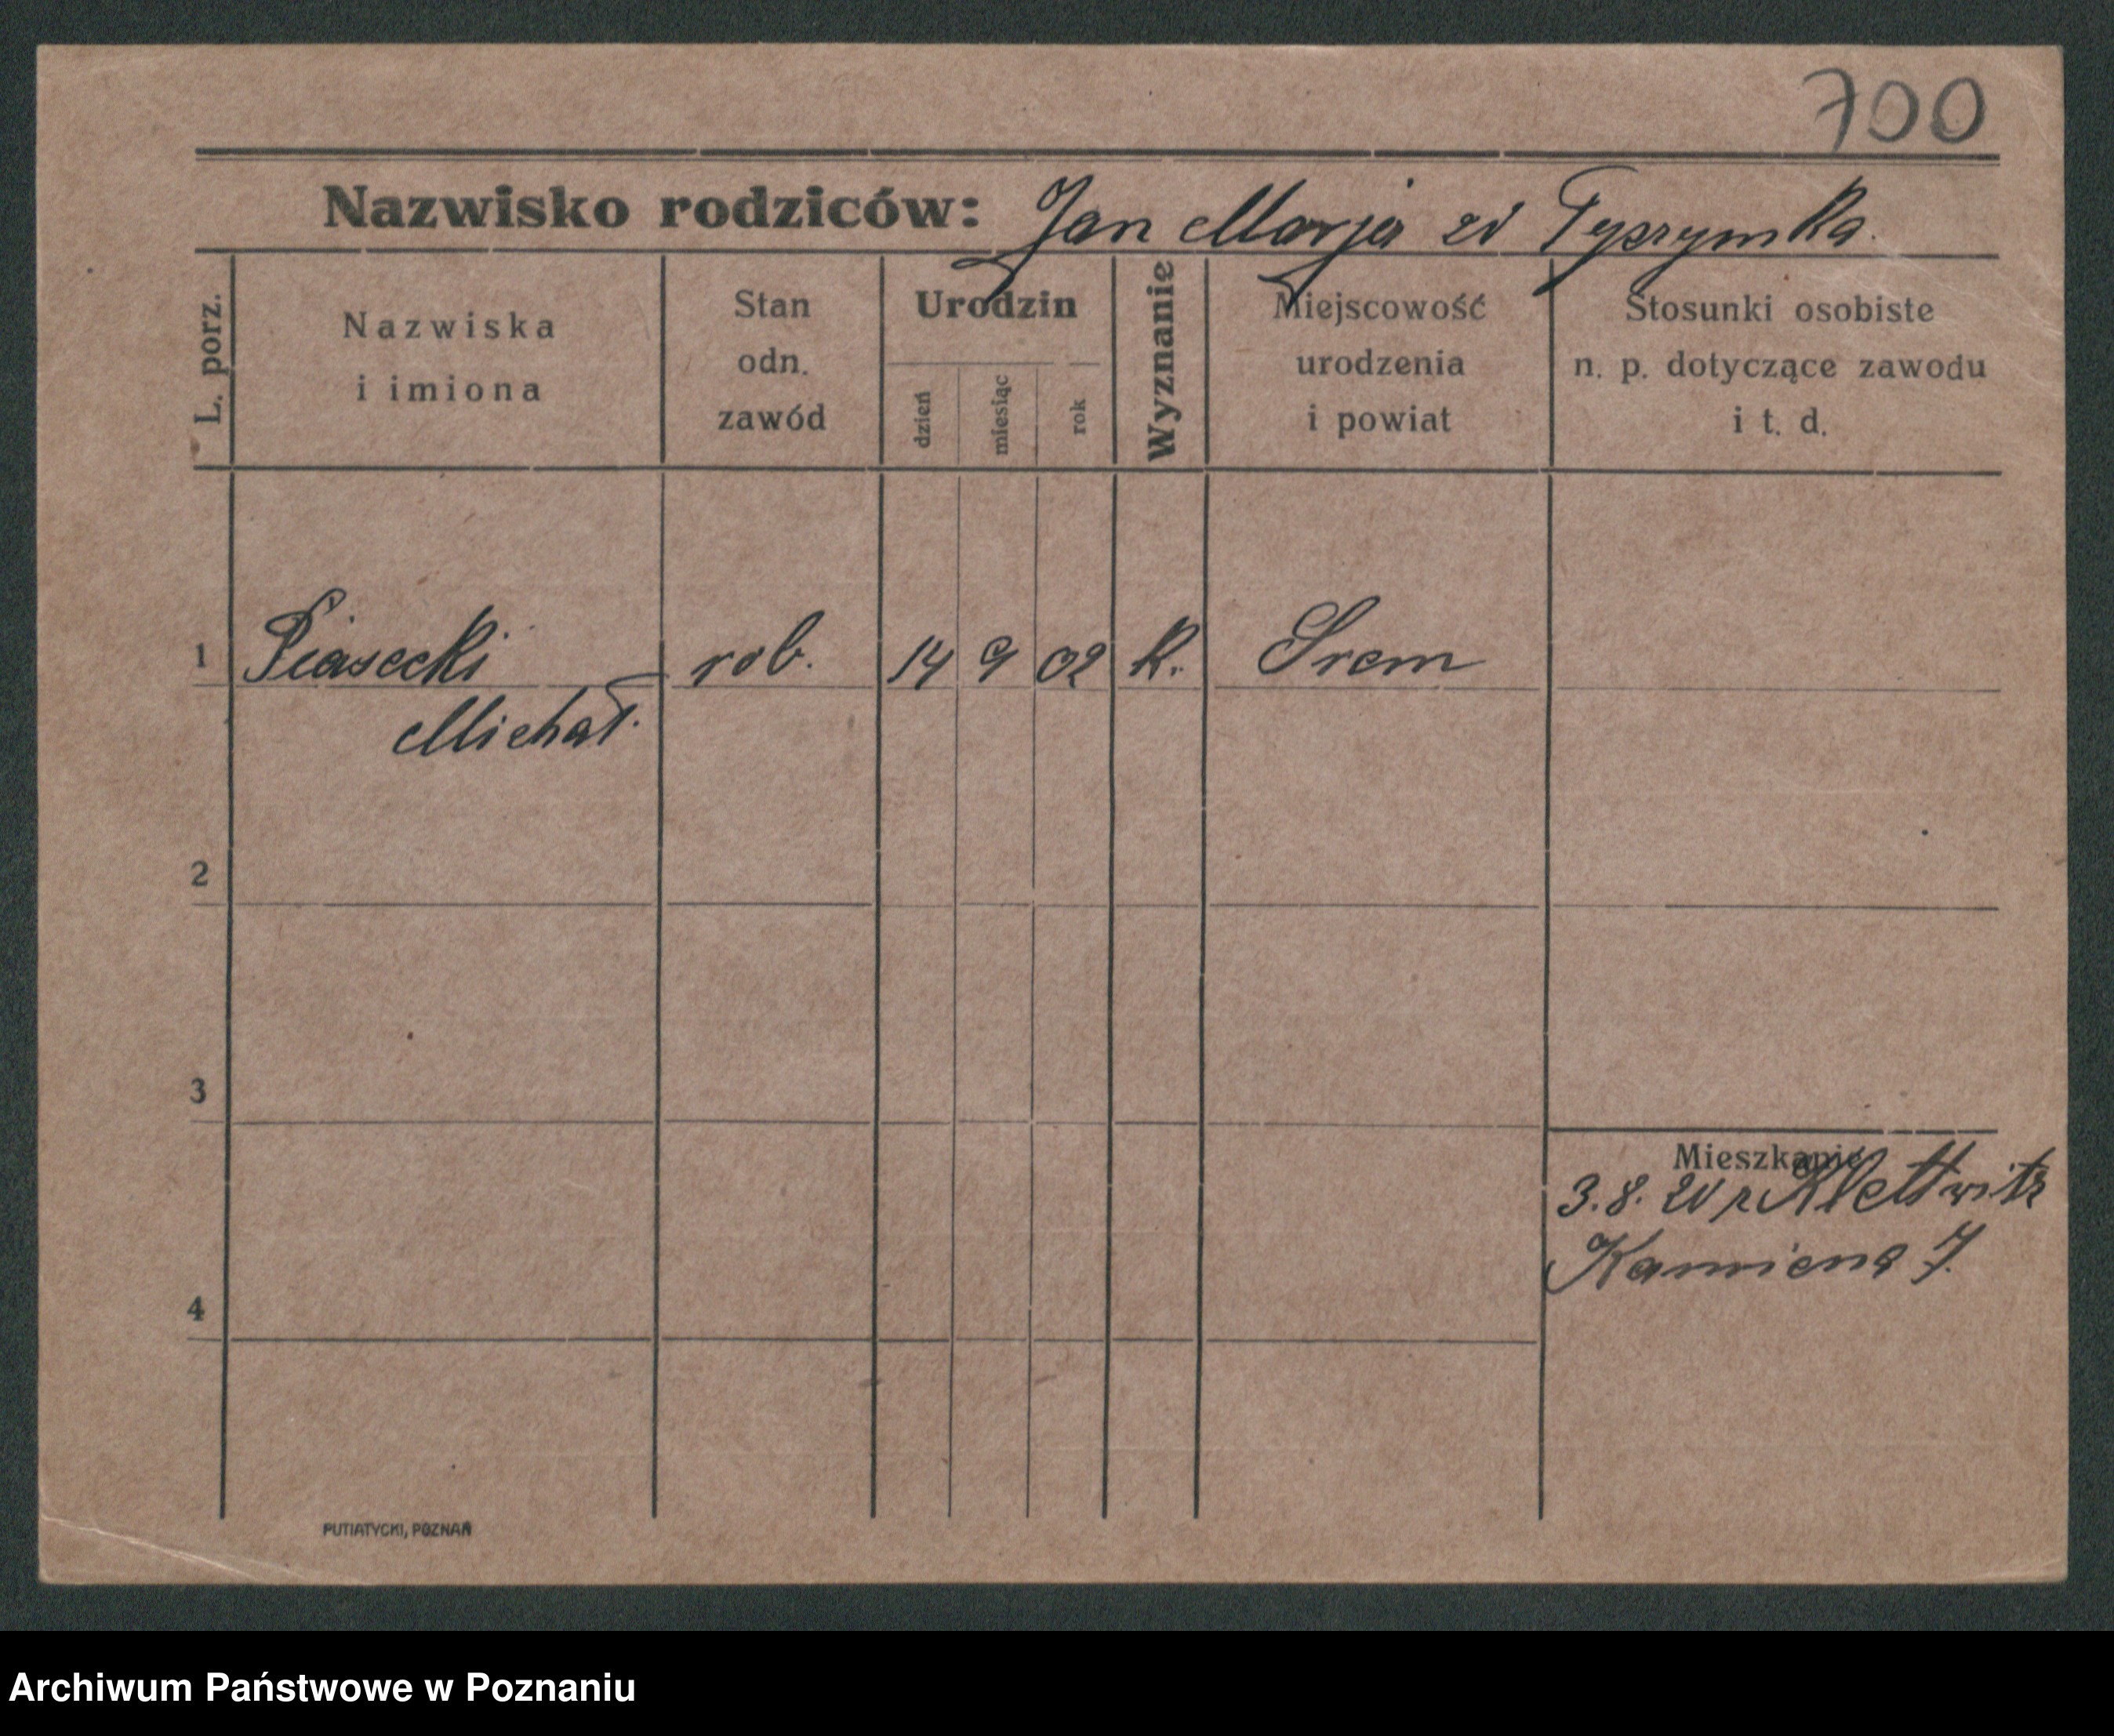 700
Nazwisko rodziców: Jan Marja zd
L. porz.
Nazwiska
i imiona
Stan
odn.
zawód
Urodzin
dzień
miesiąc
rok
Wyznanie
Miejscowość
urodzenia
i powiat
Stosunki osobiste
n. p. dotyczące zawodu
i t. d.
1 Piasecki rob. 14 9 02 k. Srem
Michał.
2
3
Mieszkanie
3. 8. z Klettwitz
Kamiena 7.
4
PUTIATYCKI, POZNAŃ
Archiwum Państwowe w Poznaniu